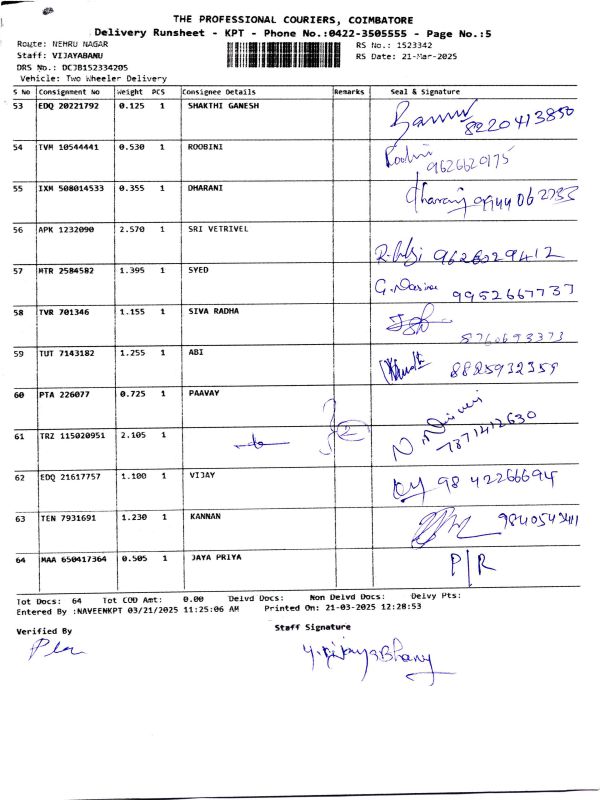 THE PROFESSIONAL COURIERS, COIMBATORE
Delivery Runsheet - KPT - Phone No.:0422-3505555 - Page No.:5
Route: NEHRU NAGAR RS No.: 1523342
Staff: VIJAYABANU RS Date: 21-Mar-2025
DRS No.: DCJB152334205
Vehicle: Two Wheeler Delivery
S No Consignment No Weight PCS Consignee Details Remarks Seal & Signature
53 EDQ 20221792 0.125 1 SHAKTHI GANESH 8220413850
54 TVM 10544441 0.530 1 ROOBINI Roobini 9626620175
55 IXM 508014533 0.355 1 DHARANI Dharani 9944062733
56 APK 1232090 2.570 1 SRI VETRIVEL 9626029412
57 MTR 2584582 1.395 1 SYED 9952667733
58 TVR 701346 1.155 1 SIVA RADHA 8760693373
59 TUT 7143182 1.255 1 ABI 8825932359
60 PTA 226077 0.725 1 PAAVAY
61 TRZ 115020951 2.105 1 7871412630
62 EDQ 21617757 1.100 1 VIJAY 9842266694
63 TEN 7931691 1.230 1 KANNAN
64 MAA 650417364 0.505 1 JAYA PRIYA P/R
Tot Docs: 64 Tot COD Amt: 0.00 Delvd Docs: Non Delvd Docs: Delvy Pts:
Entered By :NAVEENKPT 03/21/2025 11:25:06 AM Printed On: 21-03-2025 12:28:53
Verified By Staff Signature
Y. VijayaBhany